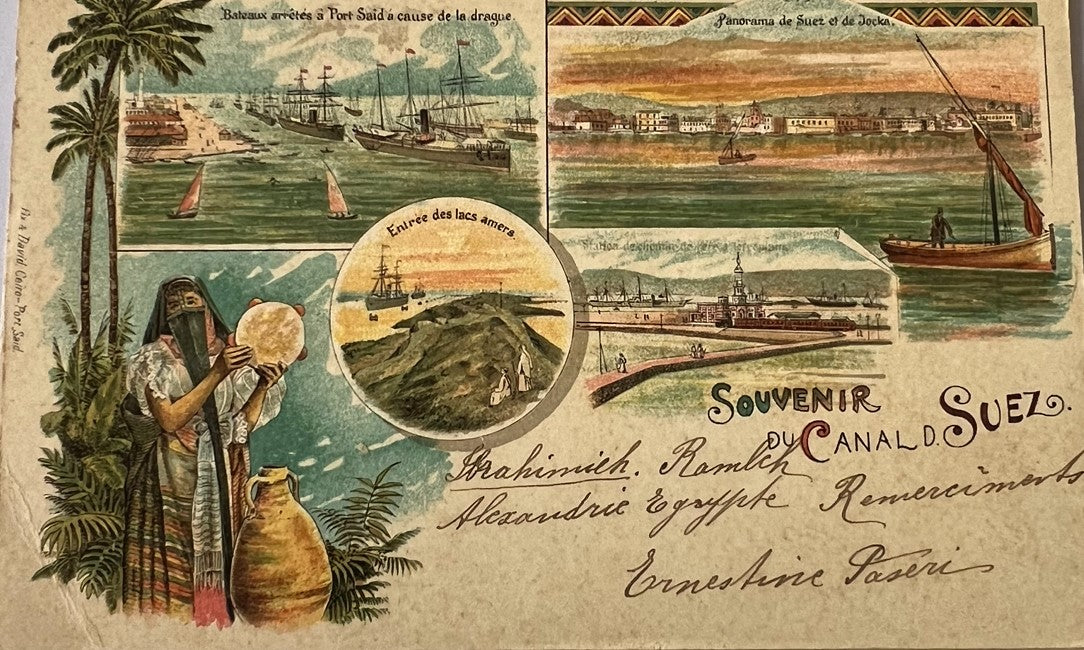 Bateaux arrêtés à Port Said à cause de la drague.
Panorama de Suez et de Jocka.
Entrée des lacs amers.
Station de chemin de fer à
SOUVENIR
DU CANAL D. SUEZ.
Ibrahimieh. Ramleh
Alexandrie Egypte Remerciments
Ernestine Paseri
David Cairo-Port Said